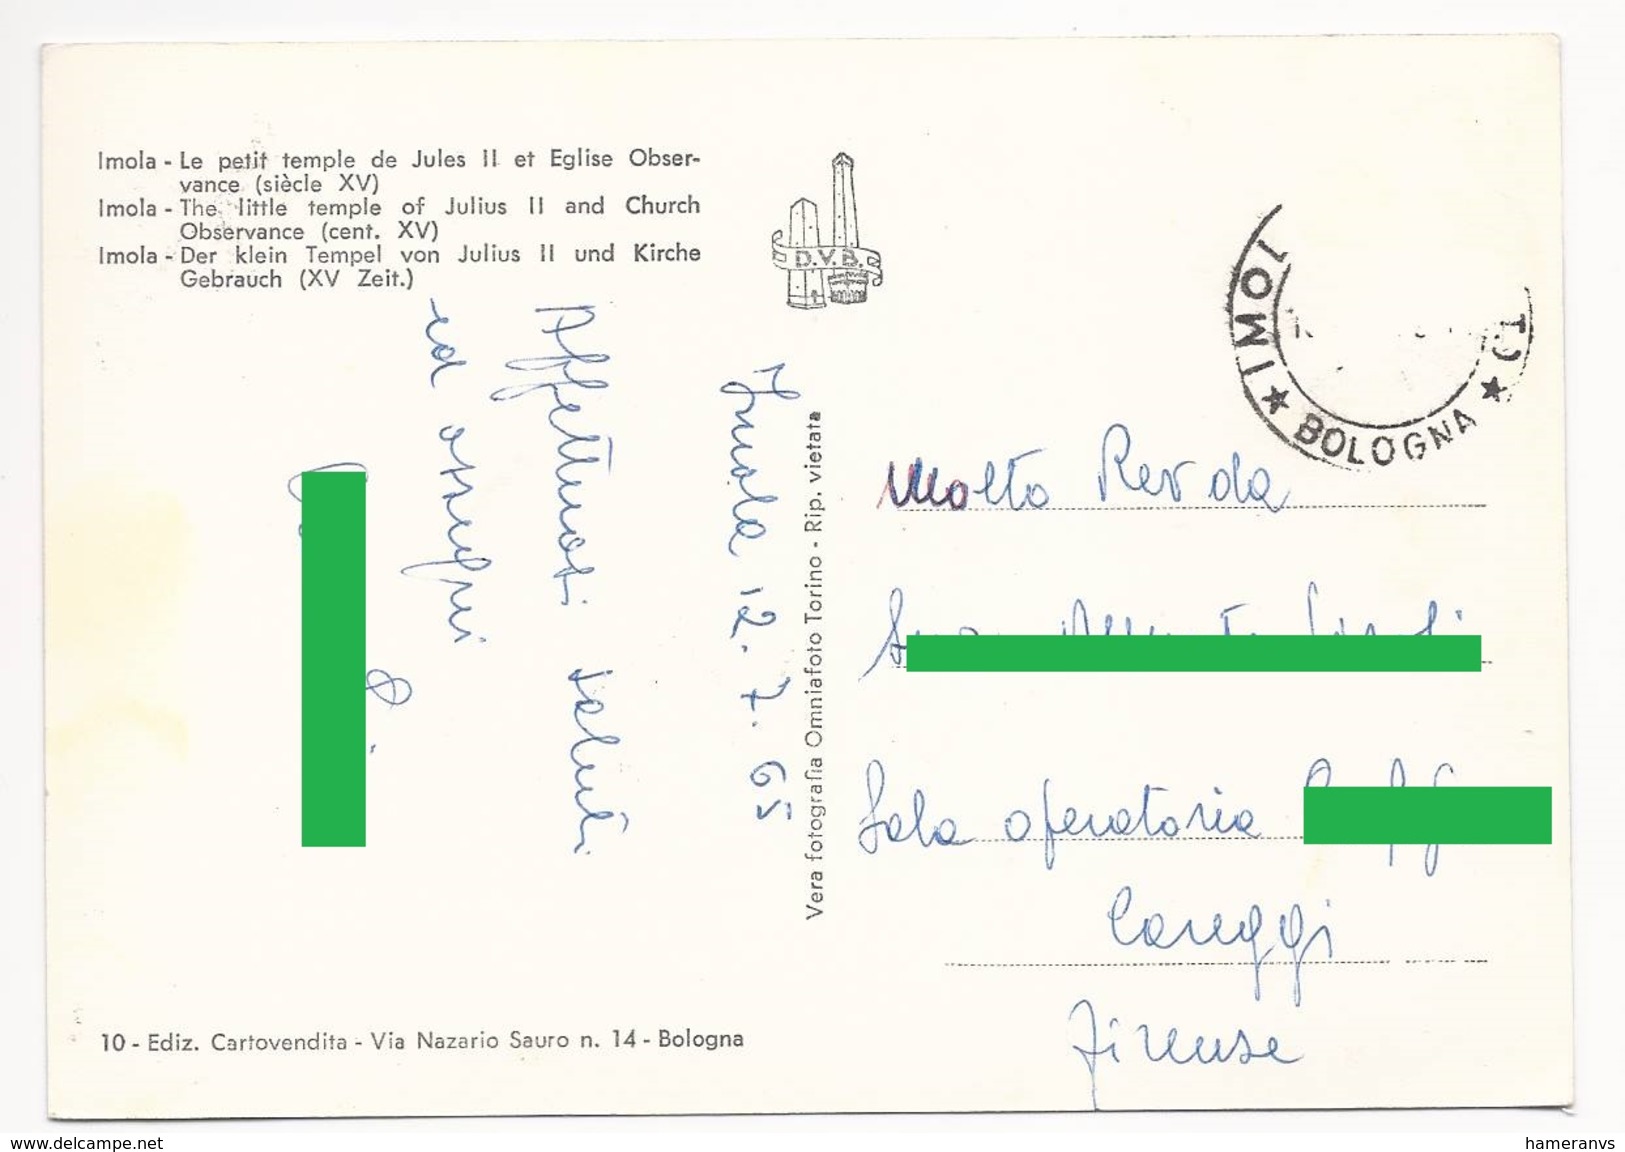 Imola - Le petit temple de Jules II et Eglise Obser-
vance (siècle XV)
Imola - The little temple of Julius II and Church
Observance (cent. XV)
Imola - Der klein Tempel von Julius II und Kirche
Gebrauch (XV Zeit.)
D.V.B.
Imola 12.7.65
Affettuosi saluti
ed ossequi
Vera fotografia Omniafoto Torino - Rip. vietata
IMOLA
★ BOLOGNA ★
Molto Rev da
Sala operatoria
Careggi
Firenze
10 - Ediz. Cartovendita - Via Nazario Sauro n. 14 - Bologna
www.delcampe.net
hameranvs